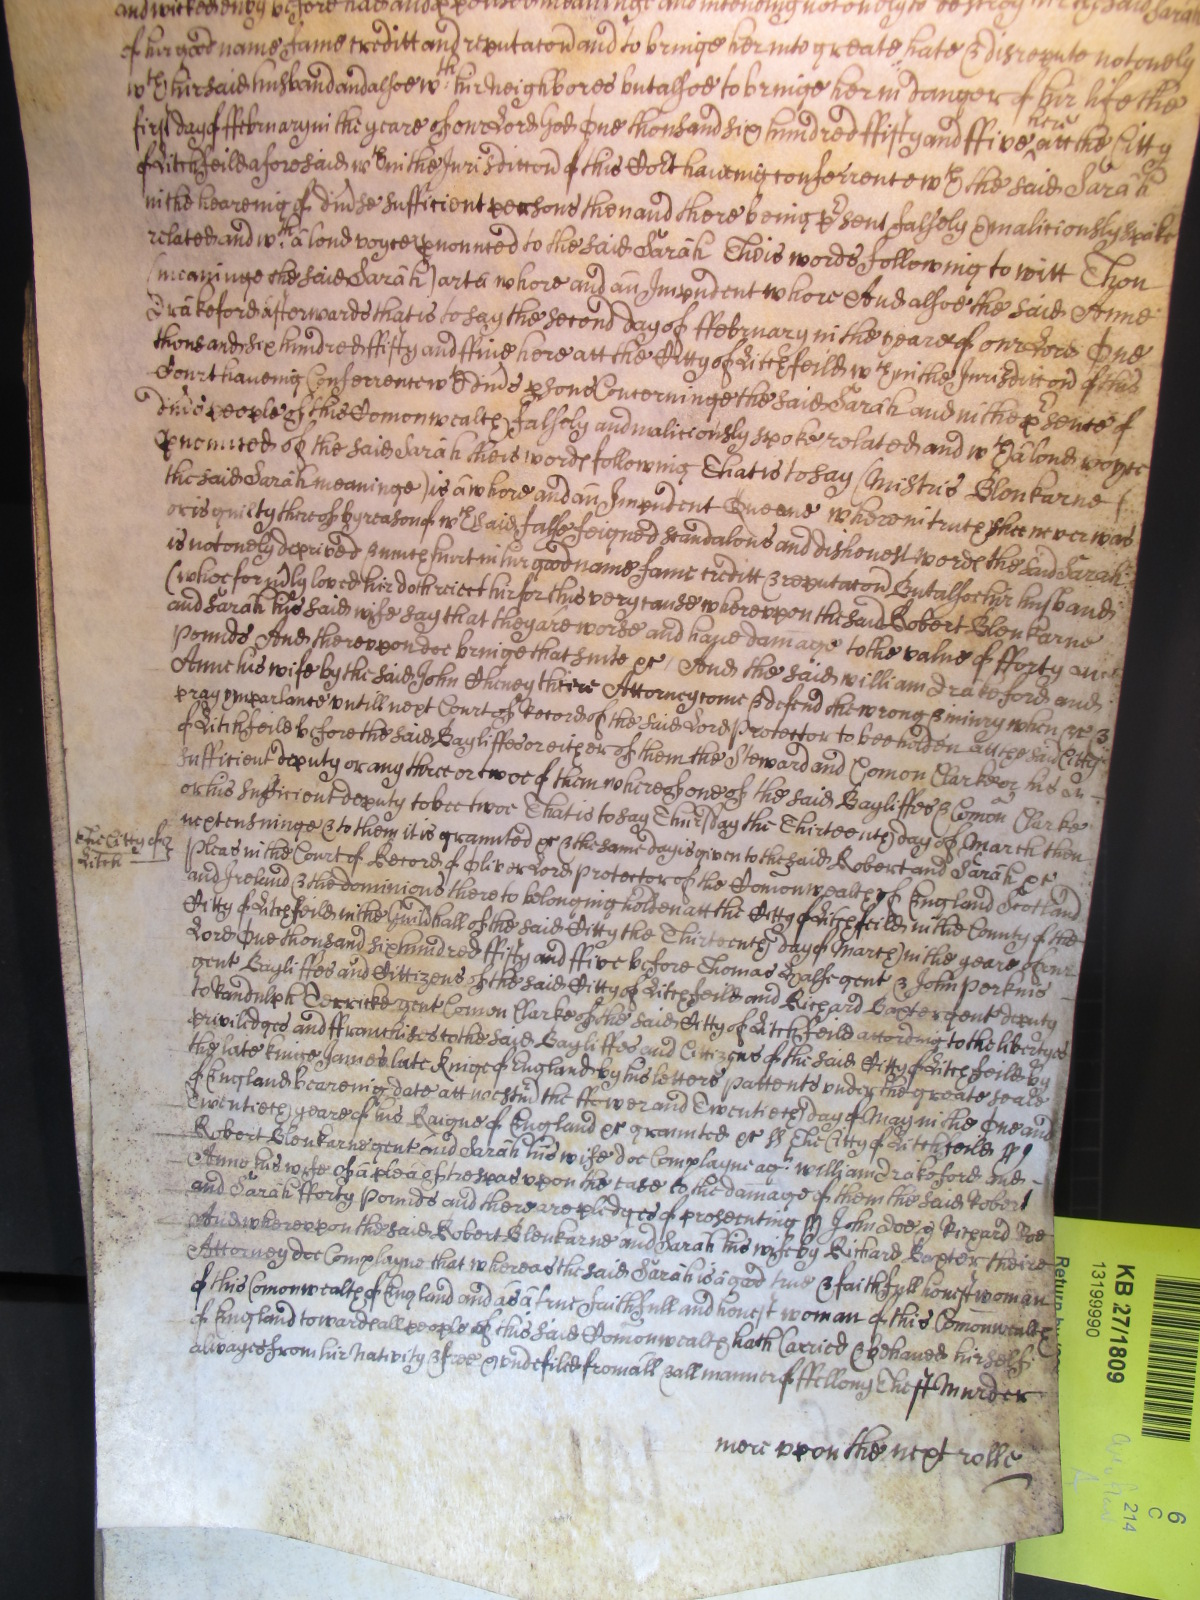 of hir good name fame creditt and reputacon and to bringe her into greate hate & disrepute not onely
wth hir said husband and alsoe wth hir neighbores but alsoe to bringe her in danger of hir life the
first day of ffebruary in the yeare of our Lord God One thousand six hundred ffifty and ffive here att the Citty
of Litchfeild aforesaid wthin the Jurisdiccon of this Cort haveing conferrence wth the said Sarah
in the heareing of divse sufficient persons then and there being psent falsely & maliciously spake
related and wth a loud voyce pnounced to the said Sarah Theis words following to witt Thou
(meaninge the said Sarah) art a whore and an Impudent whore And alsoe the said Anne
Drakeford afterwards that is to say the second day of ffebruary in the yeare of our Lord One
thousand six hundred ffifty and ffive here att the Citty of Litchfeild wthin the Jurisdiccon of this
Court haveing Conferrence wth divs psons Concerninge the said Sarah and in the psence of
divs people of this Comonwealth falsely and maliciously spoke related and wth a loud voyce
pnounced of the said Sarah theis words following That is to say (Mistris Blenkarne
the said Sarah meaninge) is a whore and an Impudent Queane where in truth shee never was
or is guilty thereof by reason of wch said false feigned scandalous and dishonest words the said Sarah
is not onely deprived & much hurt in hir good name fame creditt & reputacon But alsoe hir husband
(whoe formdly loved hir doth reject hir for this very cause whereupon the said Robert Blenkarne
and Sarah his said wife say that they are worse and have damage to the value of fforty
Pounds And thereupon doe bringe that suite &c / And the said William Drakeford and
Anne his wife by the said John Cheney theire Attorney come & defend the wrong & iniury when &c &
pray imparlance untill next Court of Record of the said Lord Protector to bee holden att the said Citty
of Litchfeild before the said Bayliffes or either of them the Steward and Comon Clarke or his
sufficient deputy or any three or twoe of them whereof one of the said Bayliffes & Comon Clarke
or his sufficient deputy to bee twoe That is to say Thursday the Thirteenth day of March then
next ensuinge & to them it is graunted &c & the same day is given to the said Robert and Sarah &c
The Citty of
Litch
Pleas in the Court of Record of Oliver Lord Protector of the Comonwealth of England Scotland
and Ireland & the dominions thereto belonging holden att the Citty of Litchfeild in the County of the
Citty of Litchfeild in the Guildhall of the said Citty the Thirteenth day of March in the yeare of our
Lord One thousand six hundred ffifty and ffive before Thomas gent & John Perkins
gent Bayliffes and Cittizens of the said Citty of Litchfeild and Richard Baxter gent deputy
to Randulph Derricke gent Comon Clarke of the said Citty of Litchfeild according to the libertyes
priviledges and ffranchises to the said Bayliffes and Cittizens of the said Citty of Litchfeild by
the late kinge James late Kinge of England by his letters pattents under the greate seale
of England beareing date att the ffower and Twentieth day of May in the One and
Twentieth yeare of his Raigne of England &c graunted &c ss The Citty of Litchfeild ss
Robert Blenkarne gent and Sarah his wife doe Complayne agt William Drakeford and
Anne his wife of a plea of trespas upon the case to the damage of them the said Robert
and Sarah fforty Pounds and there are pledges of prosecuting ss John Doe & Richard Roe
And whereupon the said Robert Blenkarne and Sarah his wife by Richard Baxter theire
Attorney doe Complayne that whereas the said Sarah is a good true & faithfull honest woman
of this Comonwealth of England and as a true faithfull and honest woman of this Comonwealth
of England towards all people of this said Comonwealth hath Carried & behaved hirselfe
alwayes from hir nativity & free & undefiled from all & all manner of ffellony Theft Murder
more upon the next rolle
KB 27/1809
13199990
Return by
6
C
214